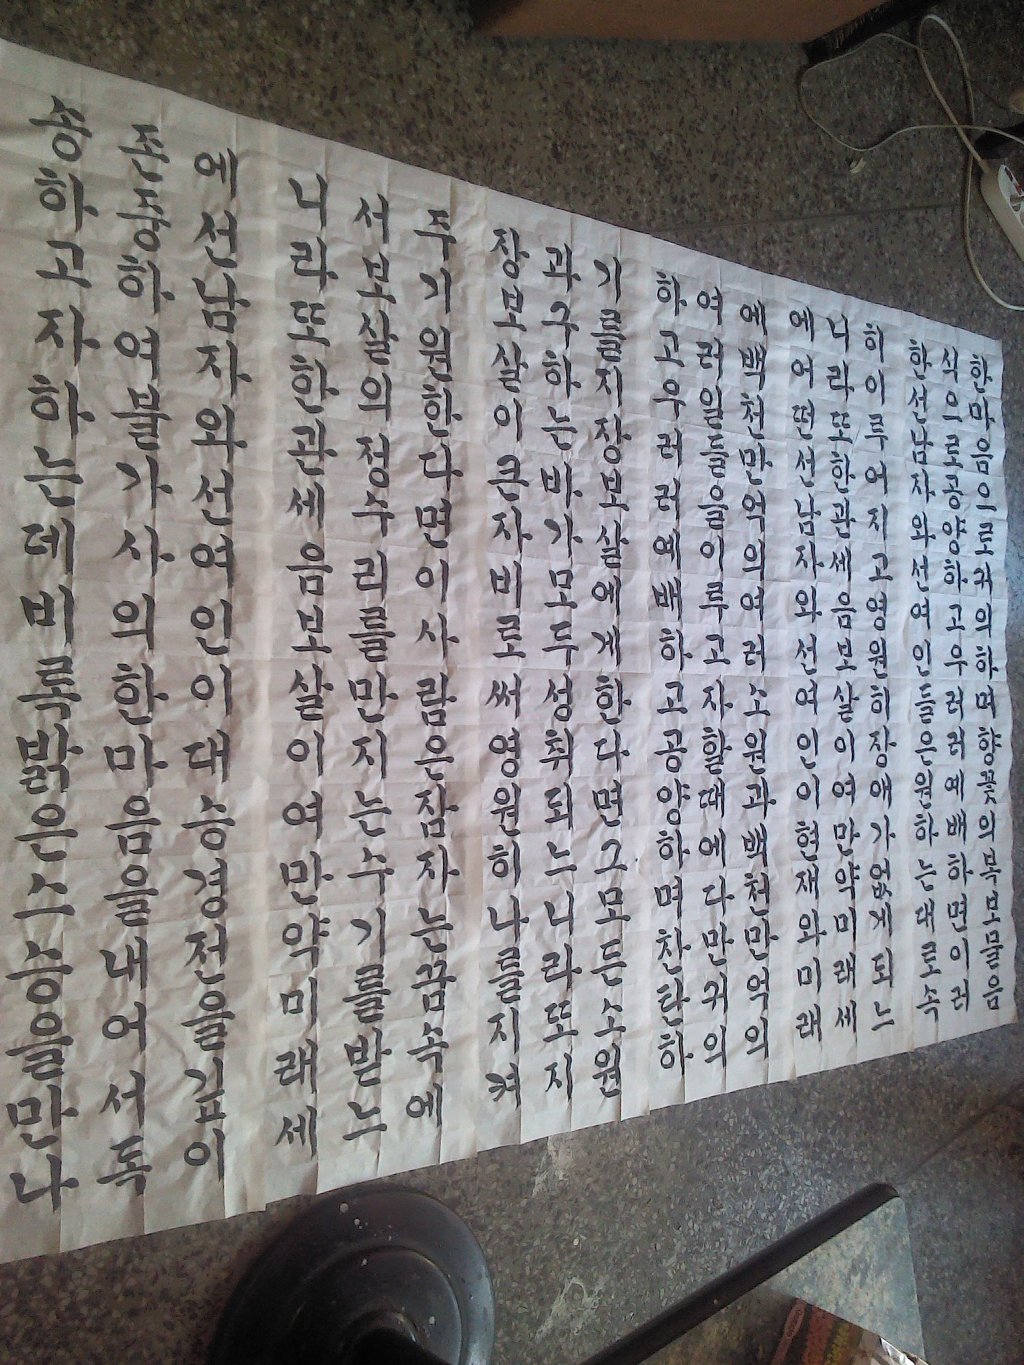 한마음으로귀의하며향꽃의복보물음
식으로공양하고우러러예배하면이러
한선남자와선여인들은원하는대로속
히이루어지고영원히장애가없게되느
니라또한관세음보살이여만약미래세
에어떤선남자와선여인이현재와미래
에백천만억의여러소원과백천만억의
여러일들을이루고자할때에다만귀의
하고우러러예배하고공양하며찬탄하
기를지장보살에게한다면그모든소원
과구하는바가모두성취되느니라또지
장보살이큰자비로써영원히나를지켜
주기원한다면이사람은잠자는꿈속에
서보살의정수리를만지는수기를받느
니라또한관세음보살이여만약미래세
에선남자와선여인이대승경전을깊이
존중하여불가사의한마음을내어서독
송하고자하는데비록밝은스승을만나